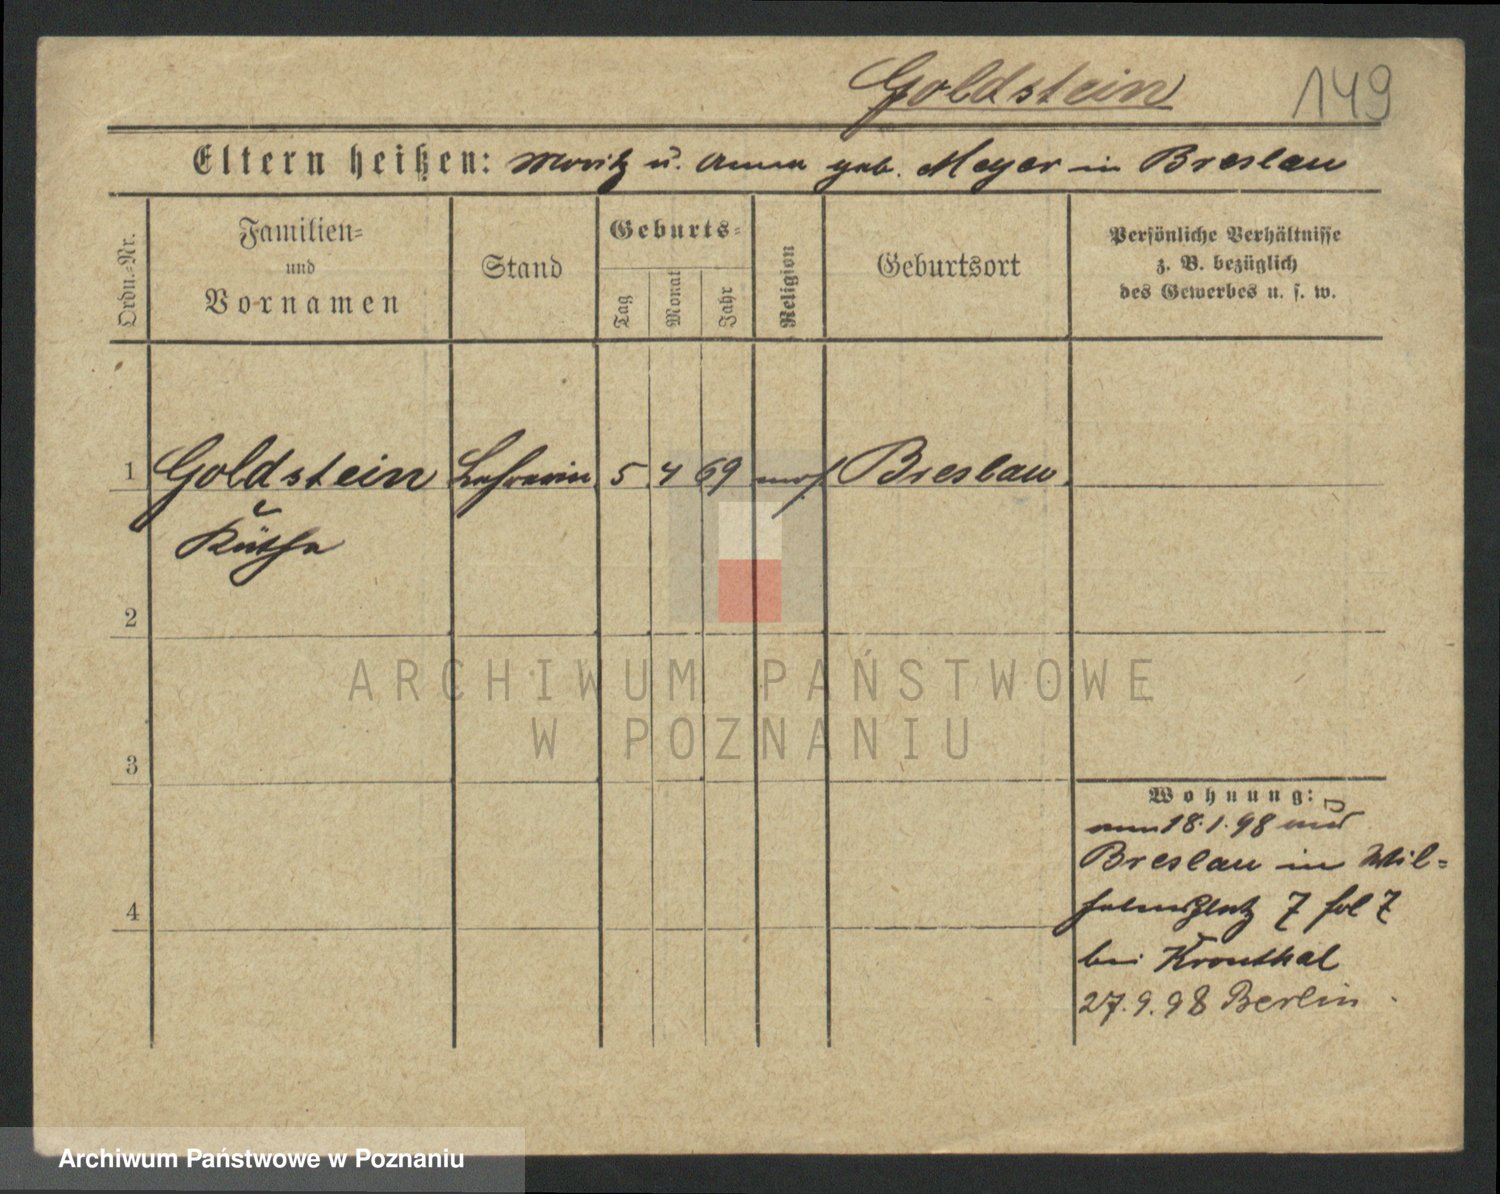 Goldstein 149
Eltern heißen: Moritz u. Anna geb. Meyer in Breslau
Ordn.-Nr.
Familien-
und
Vornamen
Stand
Geburts-
Tag
Monat
Jahr
Religion
Geburtsort
Persönliche Verhältnisse
z. B. bezüglich
des Gewerbes u. s. w.
1 Goldstein Lehrerin 5 4 69 mos. Breslau
Käthe
2
3
4
Wohnung:
18.1.98
Breslau in Wil-
helmsplatz 7
bei Kronthal
27.9.98 Berlin
ARCHIWUM PAŃSTWOWE
W POZNANIU
Archiwum Państwowe w Poznaniu